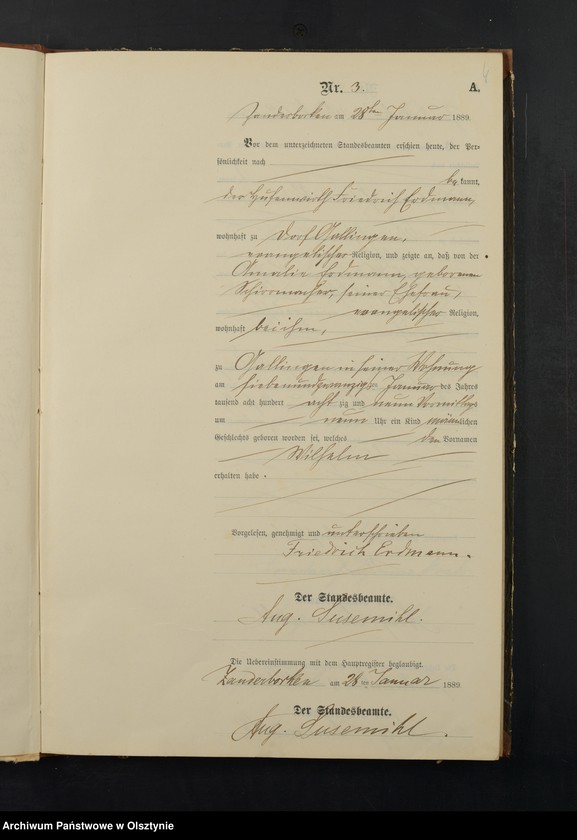 4
Nr. 3.
A.
Zanderborken am 28ten Januar 1889.
Vor dem unterzeichneten Standesbeamten erschien heute, der Per-
sönlichkeit nach
bekannt,
der Hufenwirth Friedrich Erdmann,
wohnhaft zu Dorf Gallingen,
evangelischer Religion, und zeigte an, daß von der
Amalie Erdmann, geborenen
Schirrmacher, seiner Ehefrau,
evangelischer Religion,
wohnhaft bei ihm,
zu Gallingen in seiner Wohnung
am siebenundzwanzigsten Januar des Jahres
tausend acht hundert achtzig und neun Vormittags
um neun Uhr ein Kind männlichen
Geschlechts geboren worden sei, welches den Vornamen
Wilhelm
erhalten habe.
Vorgelesen, genehmigt und unterschrieben
Friedrich Erdmann.
Der Standesbeamte.
Aug. Susemihl.
Die Uebereinstimmung mit dem Hauptregister beglaubigt.
Zanderborken am 28ten Januar 1889
Der Standesbeamte.
Aug. Susemihl.
Archiwum Państwowe w Olsztynie